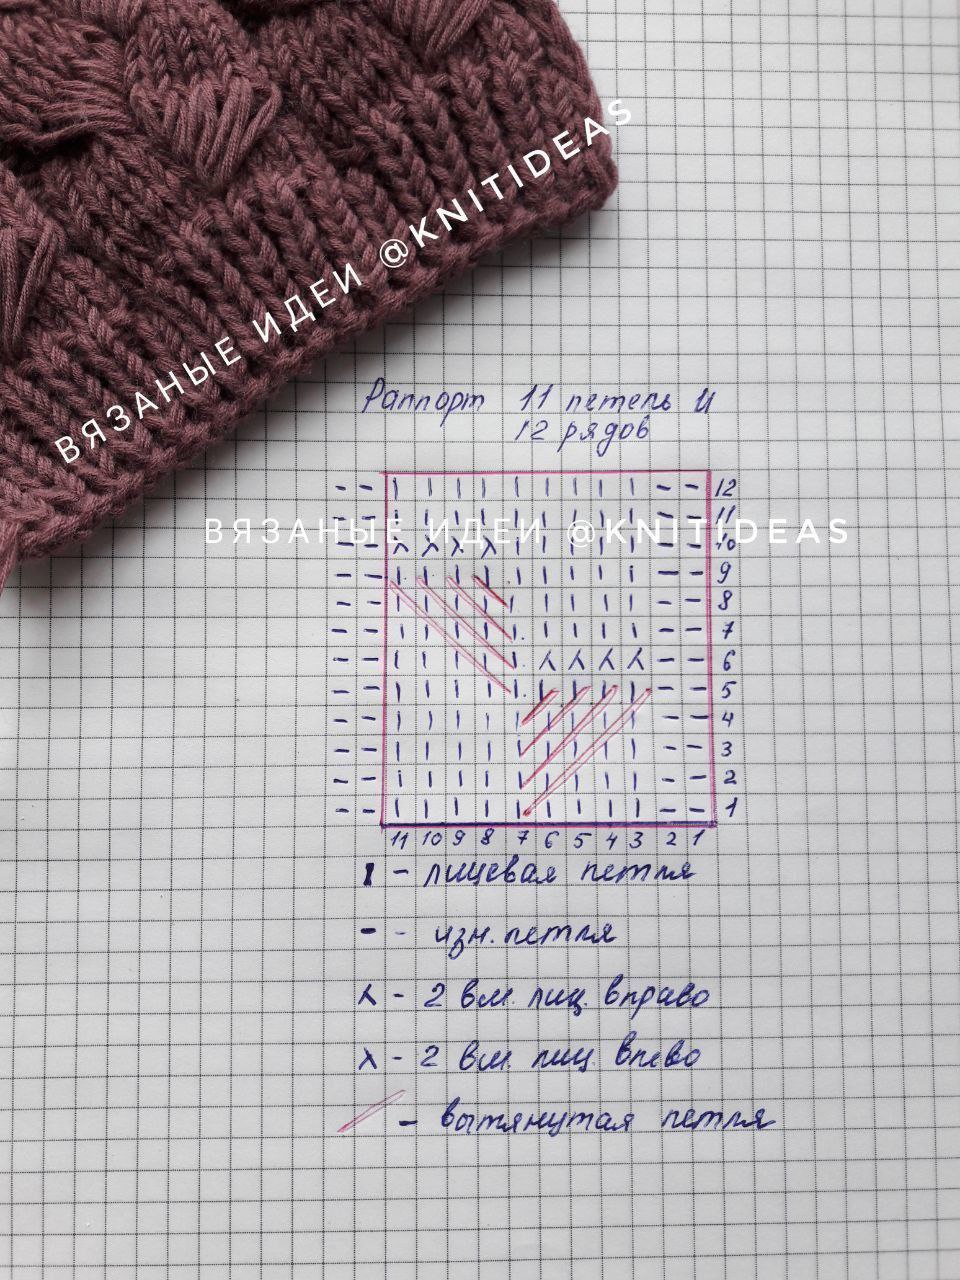 ВЯЗАНЫЕ ИДЕИ @KNITIDEAS
Раппорт 11 петель и
12 рядов
- - I I I I I I I I I - - 12
- - I I I I I I I I I - - 11
ВЯЗАНЫЕ ИДЕИ @KNITIDEAS
- - λ λ λ λ I I I I I - - 10
- - I I I I I I I I I - - 9
- - I I I I I I I I I - - 8
- - I I I I I I I I I - - 7
- - I I I I I ⅄ ⅄ ⅄ ⅄ - - 6
- - I I I I I I I I I - - 5
- - I I I I I I I I I - - 4
- - I I I I I I I I I - - 3
- - I I I I I I I I I - - 2
- - I I I I I I I I I - - 1
11 10 9 8 7 6 5 4 3 2 1
I - лицевая петля
- - изн. петля
⅄ - 2 вм. лиц. вправо
λ - 2 вм. лиц. влево
/ - вытянутая петля